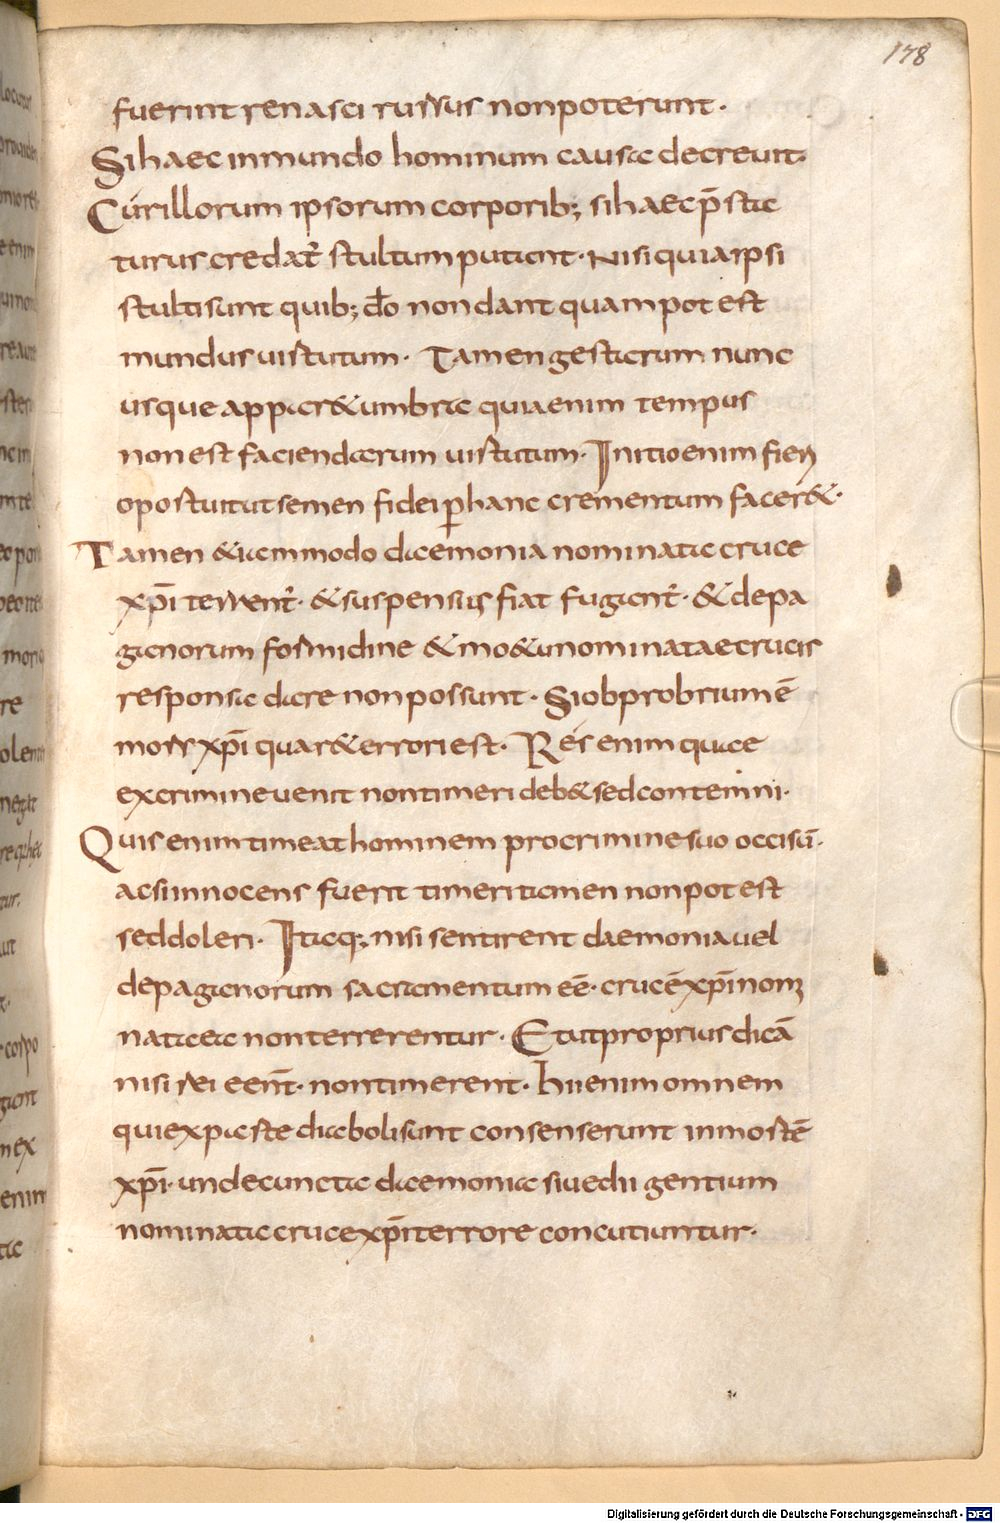 178
fuerint renasci rursus non poterunt.
Si haec in mundo hominum causa decreuit.
Cur illorum ipsorum corporib; si haec p̄sta
turus credat᷑ stultum putant. Nisi quia ipsi
stulti sunt quib; do̅ non dant quam potest
mundus uirtutum. Tamen gestarum nunc
usque apparet umbrae quia enim tempus
non est faciendarum uirtutum. Initio enim fieri
oportuit ut semen fidei ꝑ hanc crementum faceret.
Tamen & iam modo daemonia nominata cruce
xp̄i terrent᷑. & suspensus fiat fugant᷑. & depa
ganorum formidine & mo& nominatae crucis
responsa dare non possunt. Si obprobrium ē
mors xp̄i quare terrori est. Res enim quae
ex crimine uenit non timeri deb& sed contemni.
Quis enim timeat hominem pro crimine suo occisū.
ac si innocens fuerit timeri tamen non potest
sed doleri. Itaq; nisi sentirent daemonia uel
de paganorum sacramentum eē. crucē xp̄i nomi
natae non terrerentur. Et ut proprius dicā
nisi rei eent̄. non timerent. Hii enim omnem
qui ex parte diaboli sunt consenserunt in mortē
xp̄i. unde cuncta daemonia siue dii gentium
nominata cruce xp̄i terrore concutiuntur.
Digitalisierung gefördert durch die Deutsche Forschungsgemeinschaft - DFG